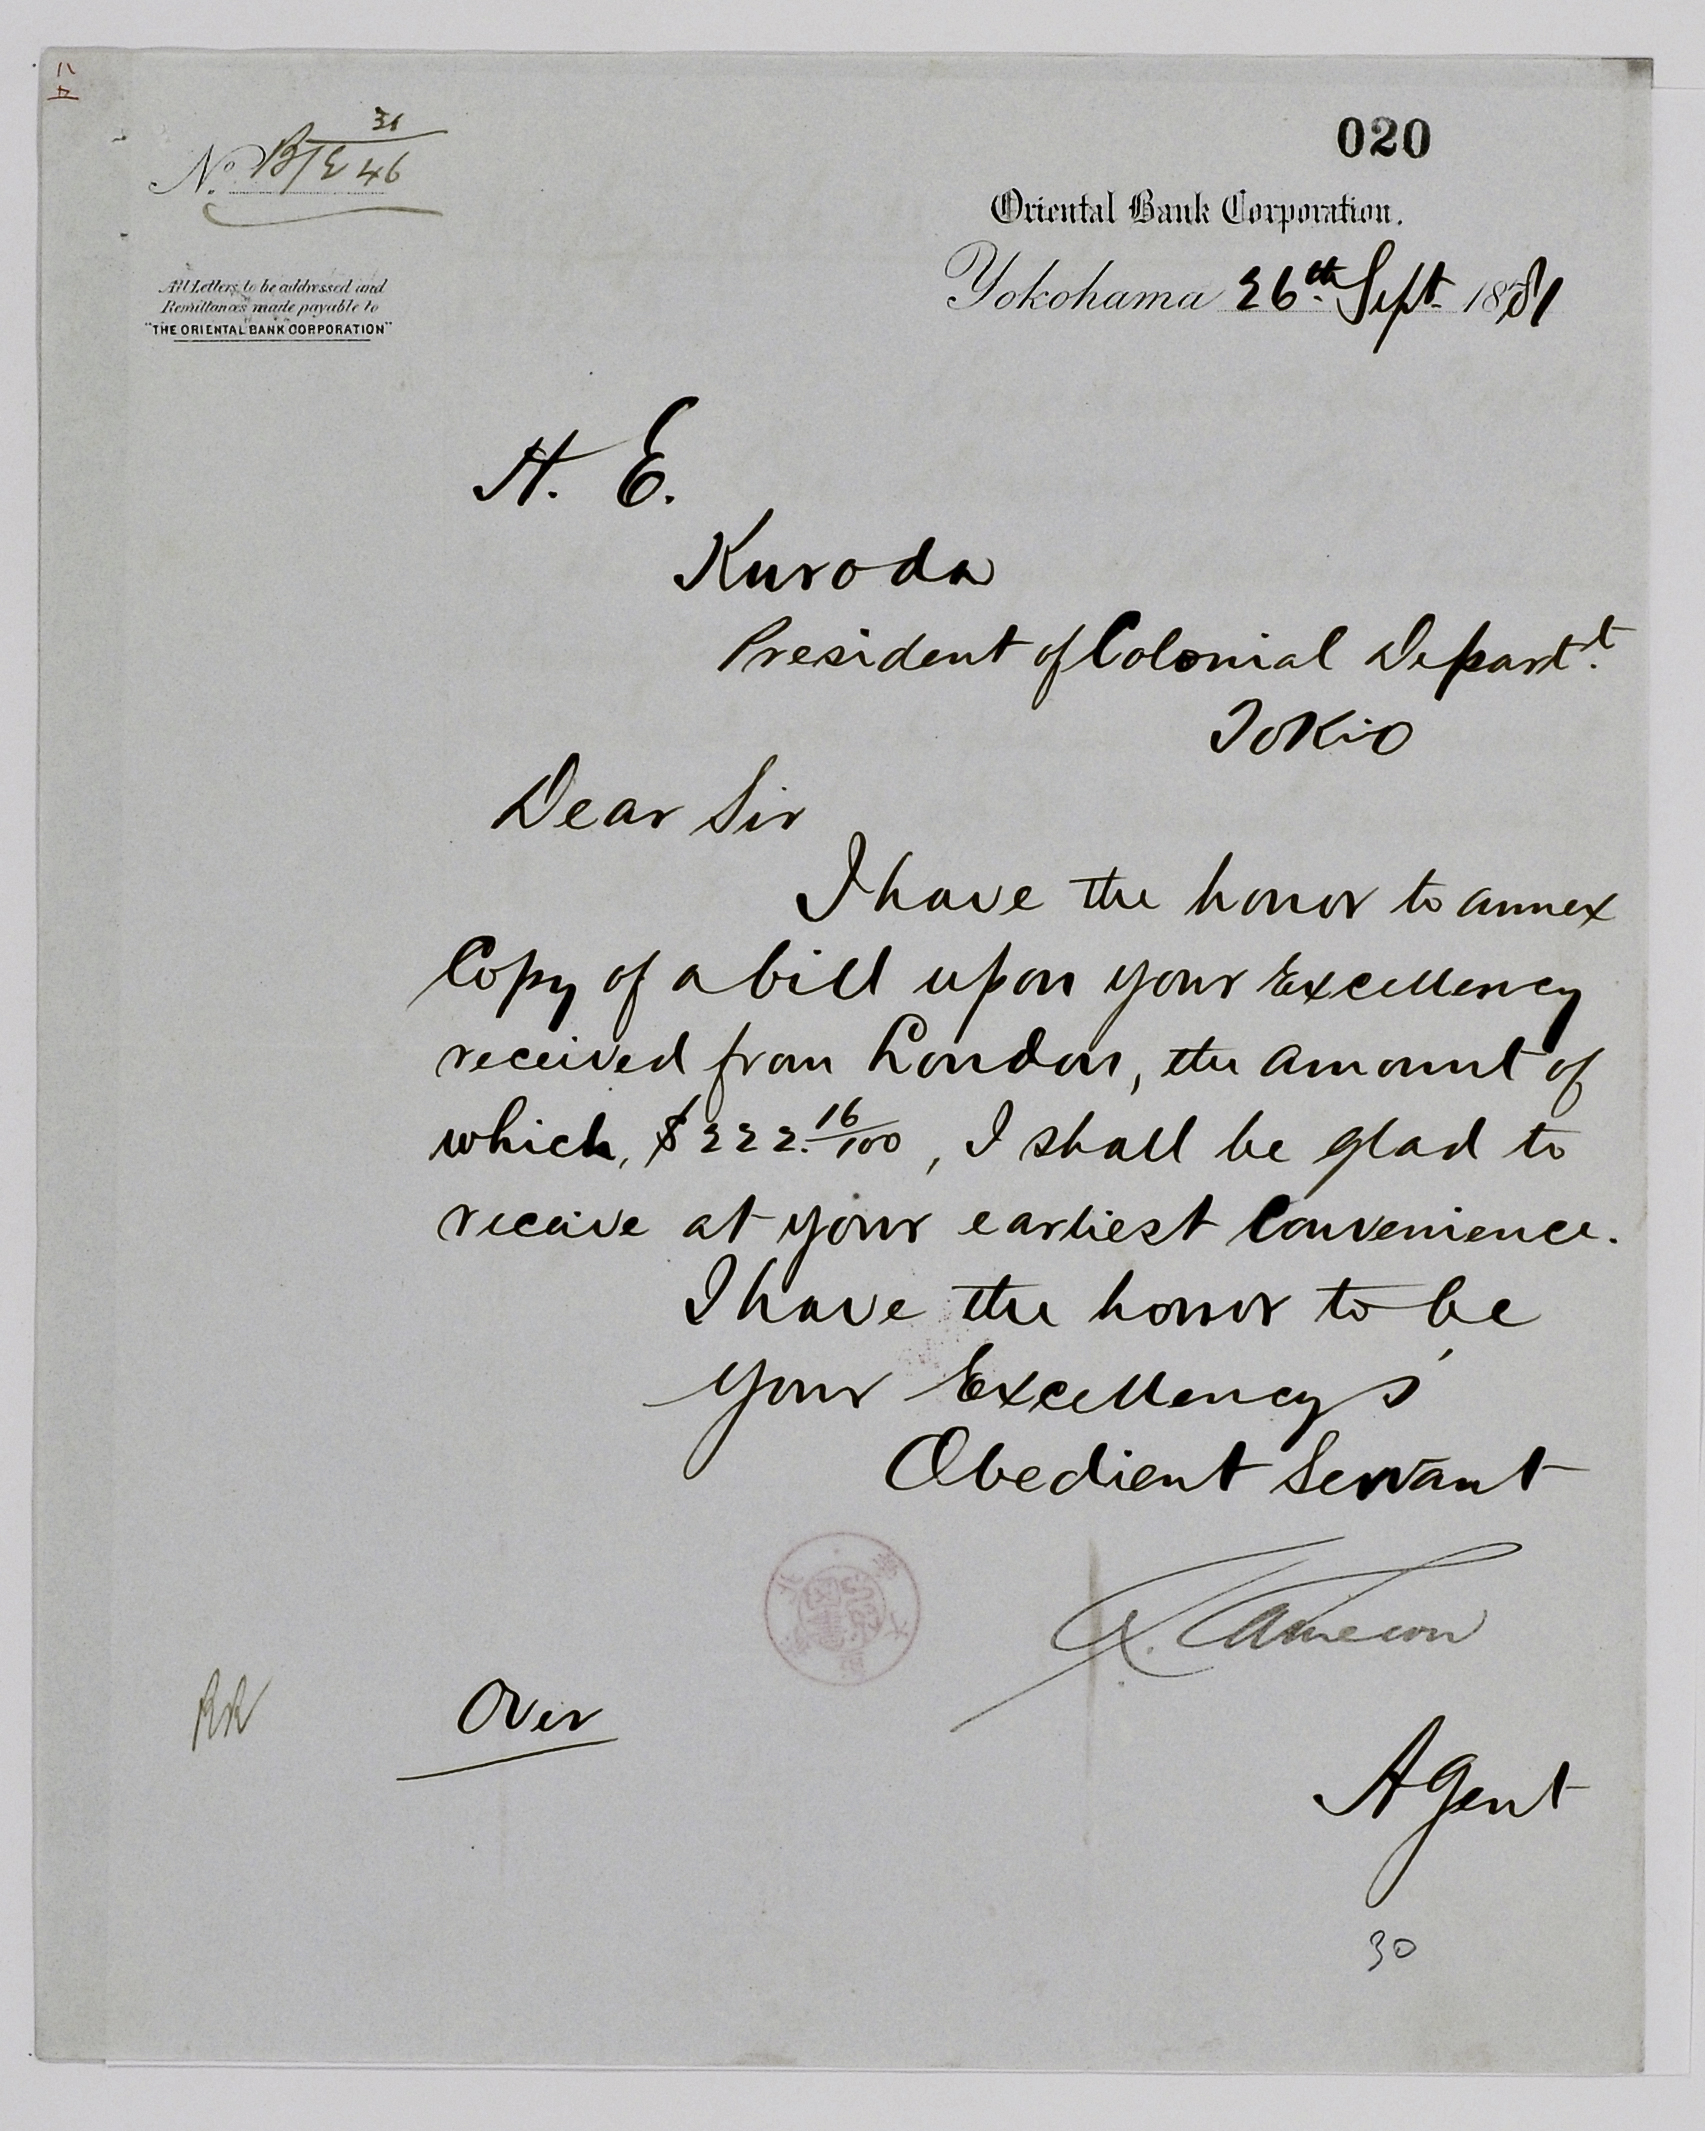 020
No. B/E 31/46
All Letters to be addressed and
Remittances made payable to
"THE ORIENTAL BANK CORPORATION"
Oriental Bank Corporation.
Yokohama 26th Sept. 1881
H. E.
Kuroda
President of Colonial Departt.
Tokio
Dear Sir
I have the honor to annex
Copy of a bill upon your Excellency
received from London, the amount of
which, $222.16/100, I shall be glad to
receive at your earliest Convenience.
I have the honor to be
your Excellency's
Obedient Servant
Cameron
Over
Agent
30